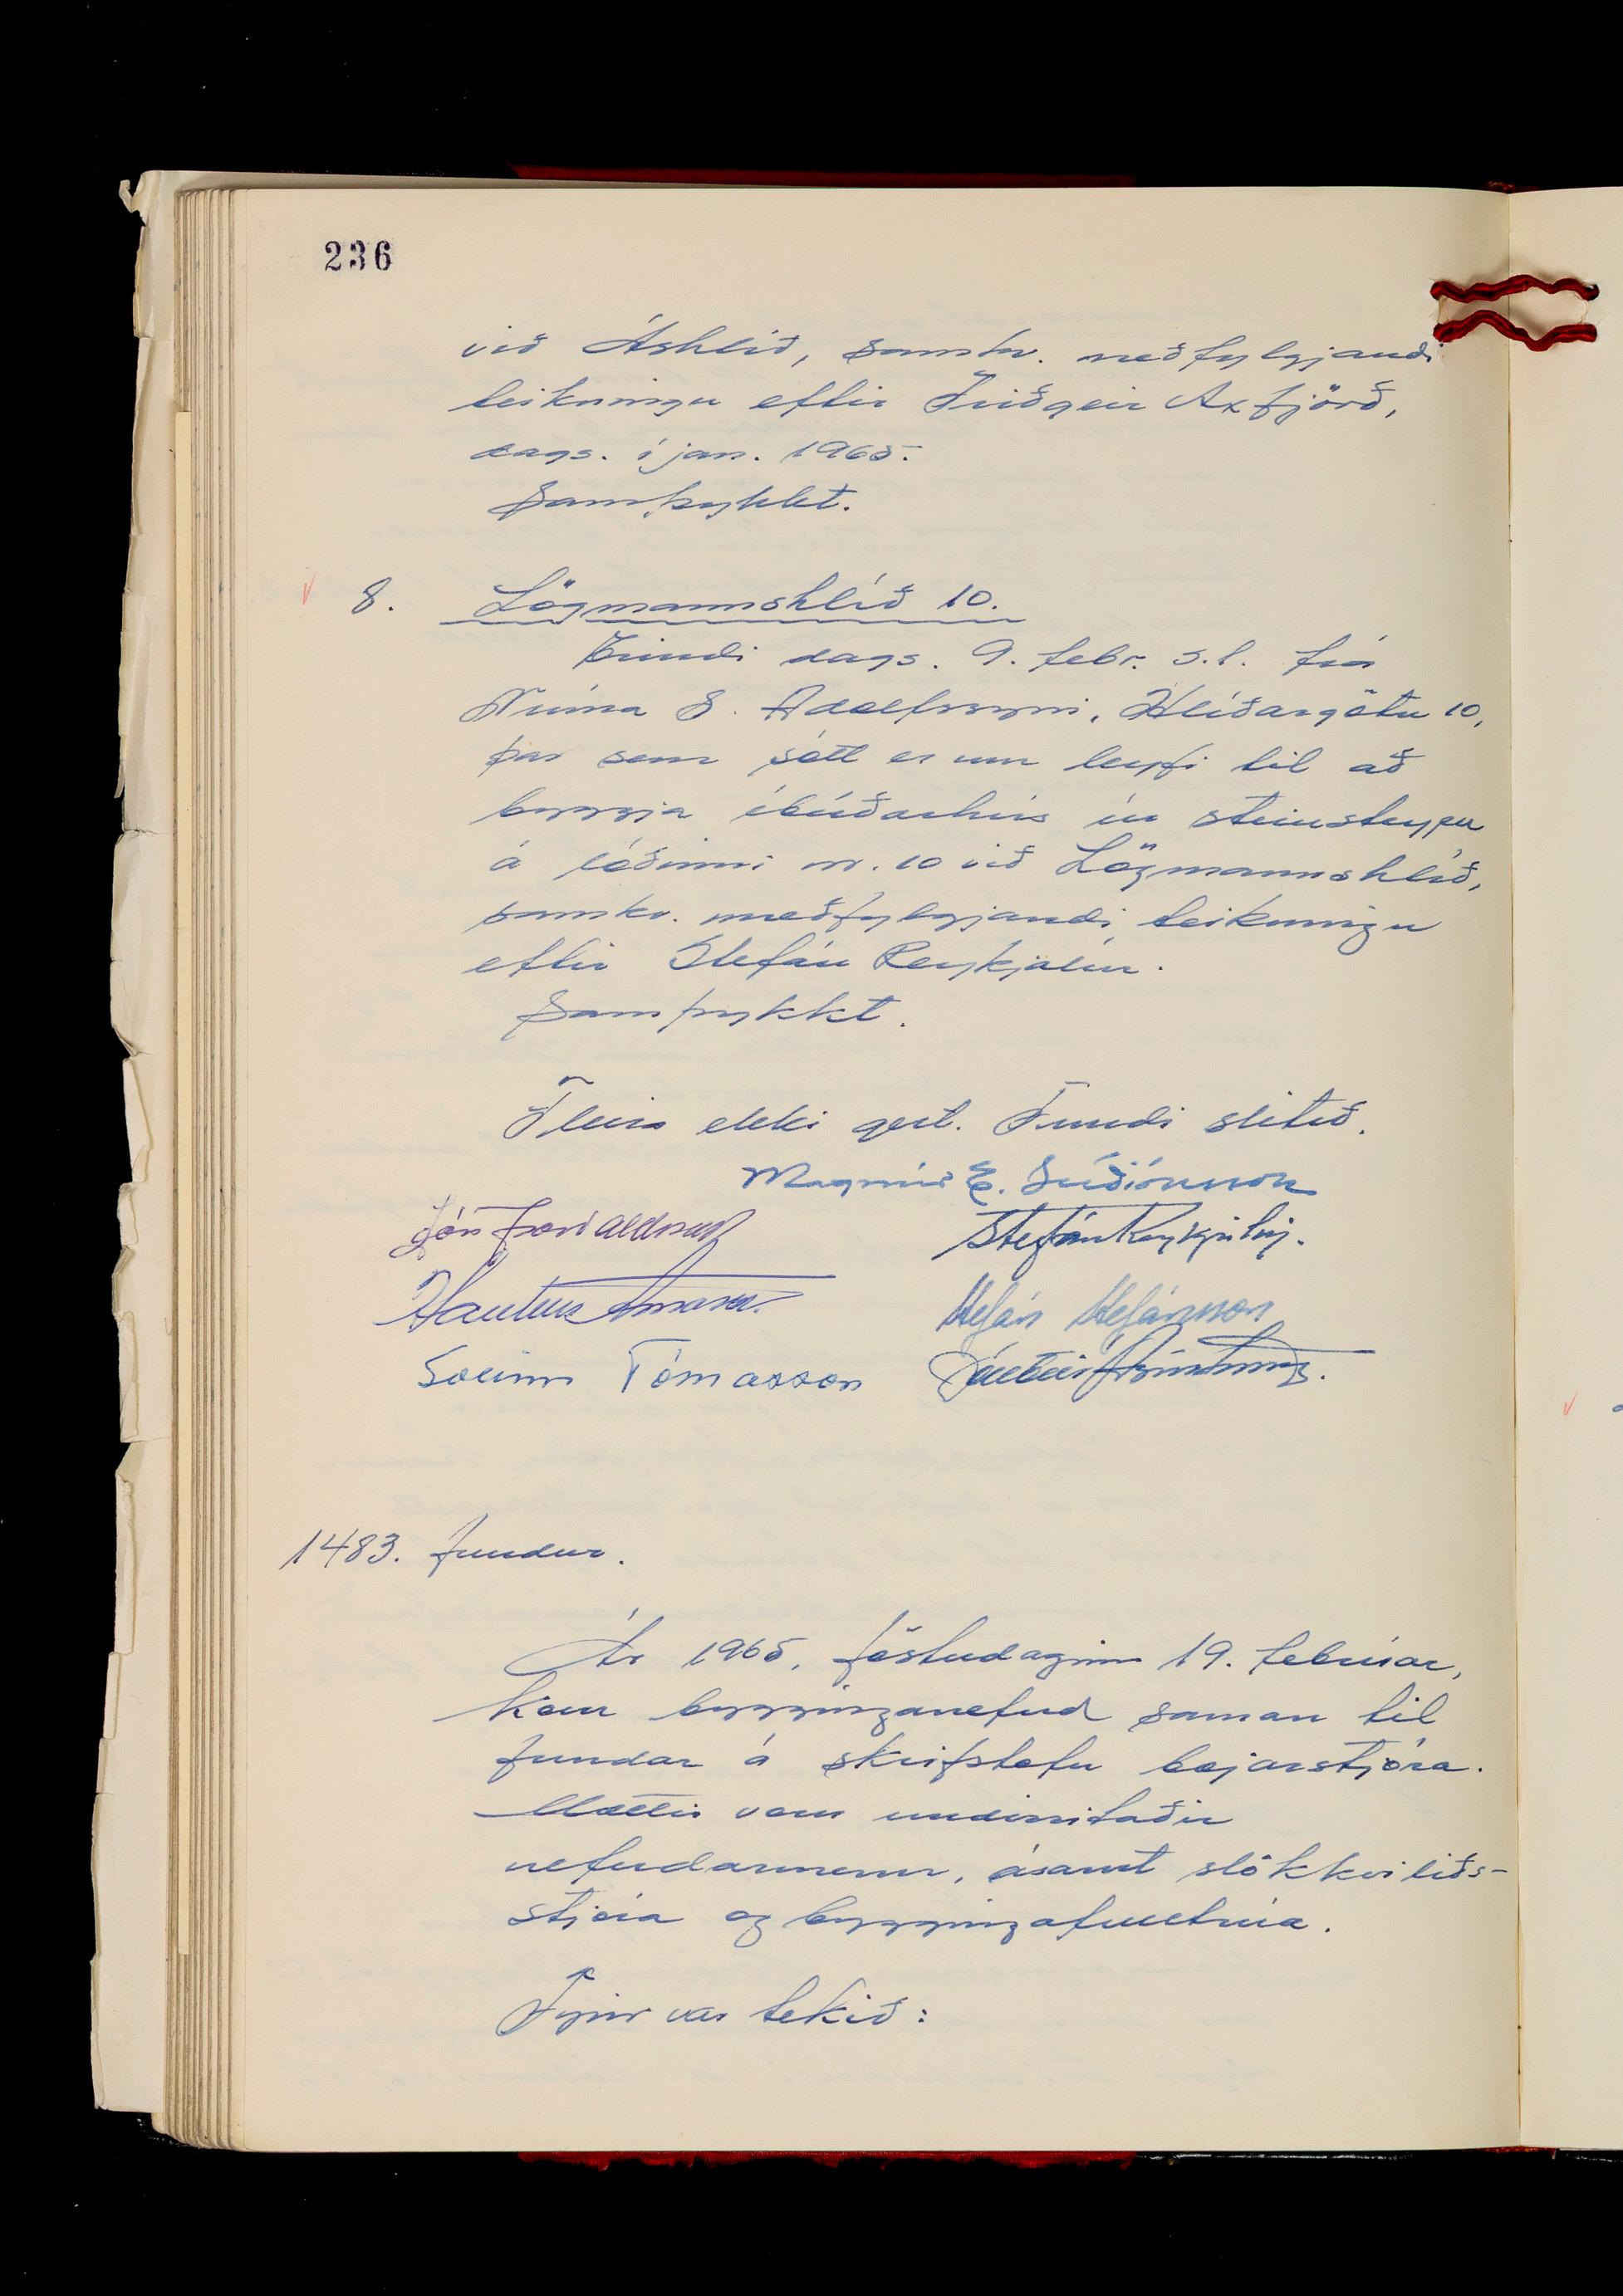 236
við Áshlíð, samkv. meðfylgjandi
teikningu eftir Friðgeir Axfjörð,
dags. í jan. 1965.
Samþykkt.
8. Lögmannshlíð 10.
Erindi dags. 9. febr. s.l. frá
Núma S. Adolfssyni, Hlíðargötu 10,
þar sem sótt er um leyfi til að
byggja íbúðarhús úr steinsteypu
á lóðinni nr. 10 við Lögmannshlíð,
samkv. meðfylgjandi teikningu
eftir Stefán Reykjalín.
Samþykkt.
Fleira ekki gert. Fundi slitið.
Magnús E. Guðjónsson
Jón Þorvaldsson Stefán Reykjalín.
Haukur Árnason. Stefán Stefánsson
Sveinn Tómasson
1483. fundur.
Ár 1965, föstudaginn 19. febrúar,
kom bygginganefnd saman til
fundar á skrifstofu bæjarstjóra.
Mættir voru undirritaðir
nefndarmenn, ásamt slökkviliðs-
stjóra og byggingafulltrúa.
Fyrir var tekið: